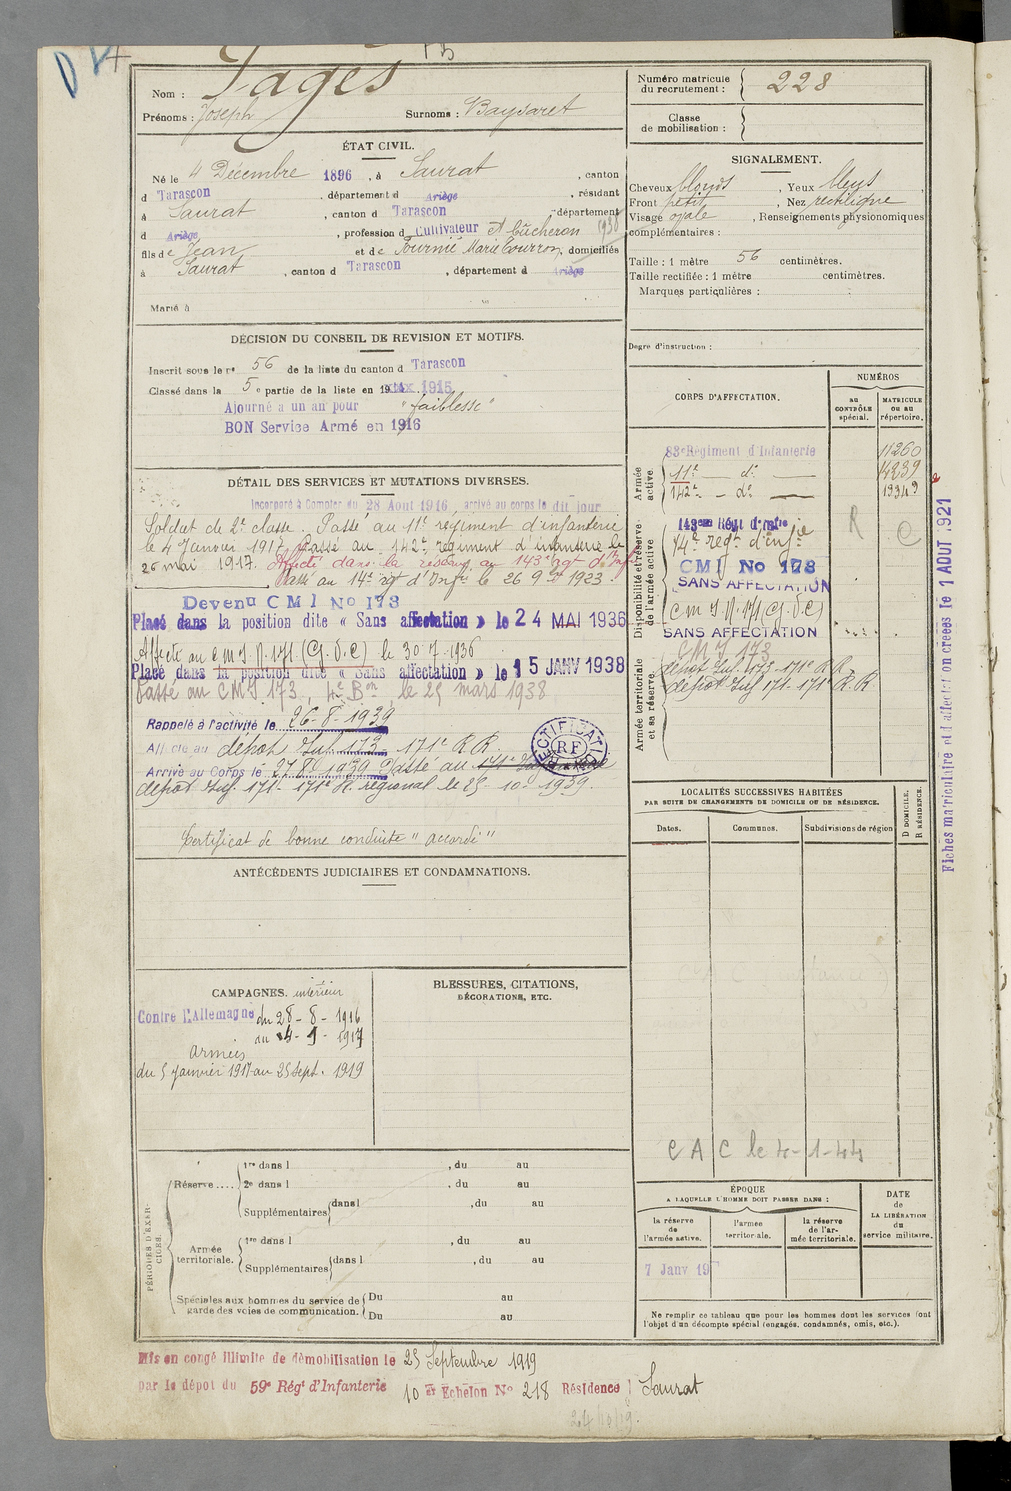 Nom : Pagès
Prénoms : Joseph
Surnoms : Baysaret
Numéro matricule du recrutement : 228
Classe de mobilisation :
ÉTAT CIVIL.
Né le 4 Décembre 1896, à Saurat, canton
d Tarascon, département d Ariège, résidant
à Saurat, canton d Tarascon, département
d Ariège, profession d Cultivateur et Bûcheron 1938
fils de Jean et de Fournié Marie, domiciliés
à Saurat, canton d Tarascon, département d Ariège
Marié à
SIGNALEMENT.
Cheveux blonds, Yeux bleus,
Front petit, Nez rectiligne
Visage ovale, Renseignements physionomiques
complémentaires :
Taille : 1 mètre 56 centimètres.
Taille rectifiée : 1 mètre centimètres.
Marques particulières :
Degré d'instruction :
DÉCISION DU CONSEIL DE REVISION ET MOTIFS.
Inscrit sous le n° 56 de la liste du canton d Tarascon
Classé dans la 5e partie de la liste en 1915
Ajourné à un an pour "faiblesse"
BON Service Armé en 1916
DÉTAIL DES SERVICES ET MUTATIONS DIVERSES.
Incorporé à Compter du 28 Aout 1916 arrivé au corps le dit jour
Soldat de 2e classe. Passé au 11e régiment d'infanterie
le 4 Janvier 1917. Passé au 142e régiment d'infanterie le
20 mai 1917. Affecté dans la réserve au 143e rgt d'Inf
Passé au 14e rgt d'Infie le 26 9bre 1923.
Devenu CMI No 173
Placé dans la position dite « Sans affectation » le 24 MAI 1936
Affecté au C.M.I. N. 171 (G.V.C) le 30-7-1936
Placé dans la position dite « Sans affectation » le 15 JANV 1938
Passé au CMI 173, 4e Bon le 25 mars 1938
Rappelé à l'activité le 26-8-1939
Affecté au dépôt Inf. 173 - 171e R R.
Arrivé au Corps le 27 8 1939 Passé au
dépôt Inf. 171 - 171e R. régional le 25-10-1939.
Certificat de bonne conduite "accordé"
RECTIFICATION
RF
CORPS D'AFFECTATION.
NUMÉROS
au CONTRÔLE spécial.
MATRICULE ou au répertoire.
Armée active
83e Régiment d'Infanterie 11260
11e do 14239
142e - do 19349
Disponibilité et réserve de l'armée active
143eme Régt d'Infie
14e regt d'infie
CMI No 178
SANS AFFECTATION
C M I. N. 171 (G.V.C)
SANS AFFECTATION
R
C
Armée territoriale et sa réserve.
CMI 173
dépôt Inf. 173 - 171e R R
dépôt Inf 171 - 171e R.R
Fiches matriculaire et d'affectation créées le 1 AOUT 1921
LOCALITÉS SUCCESSIVES HABITÉES
PAR SUITE DE CHANGEMENTS DE DOMICILE OU DE RÉSIDENCE.
Dates.
Communes.
Subdivisions de région
D DOMICILE.
R RÉSIDENCE.
C A C le 4-1-44
ANTÉCÉDENTS JUDICIAIRES ET CONDAMNATIONS.
CAMPAGNES. intérieur
Contre l'Allemagne du 28-8-1916
au 4-1-1917
armées
du 5 Janvier 1917 au 25 Sept. 1919
BLESSURES, CITATIONS,
DÉCORATIONS, ETC.
PÉRIODES D'EXERCICES.
Réserve....
1re dans l , du au
2e dans l , du au
Supplémentaires dans l , du au
Armée territoriale.
1re dans l , du au
Supplémentaires dans l , du au
Spéciales aux hommes du service de garde des voies de communication.
Du au
Du au
ÉPOQUE
A LAQUELLE L'HOMME DOIT PASSER DANS :
la réserve de l'armée active.
l'armée territoriale.
la réserve de l'armée territoriale.
DATE de LA LIBÉRATION du service militaire.
7 Janv 19
Ne remplir ce tableau que pour les hommes dont les services font
l'objet d'un décompte spécial (engagés, condamnés, omis, etc.).
Mis en congé illimité de démobilisation le 25 Septembre 1919
par le dépôt du 59e Régt d'Infanterie 10 Echelon No 218 Résidence Saurat